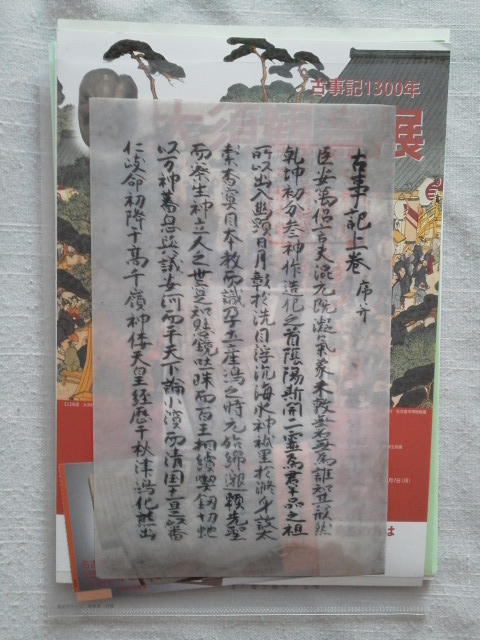 古事記1300年
大須観音
展
古事記上巻 序并
臣安萬侶言夫混元既凝氣象未效無名無為誰知其形然
乾坤初分参神作造化之首陰陽斯開二霊為群品之祖
所以出入幽顕日月彰於洗目浮沉海水神祇呈於滌身故太
素杳冥因本教而識孕土産嶋之時元始綿邈頼先聖
而察生神立人之世寔知懸鏡吐珠而百王相續喫釼切虵
以万神蕃息與議安河而平天下論小濱而清国土是以番
仁岐命初降于高千嶺神倭天皇経歴于秋津嶋化熊出